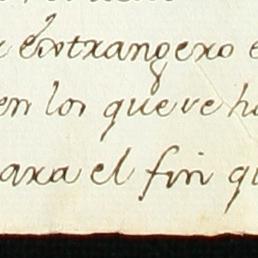 extrangero e
en los que se ha
para el fin qu